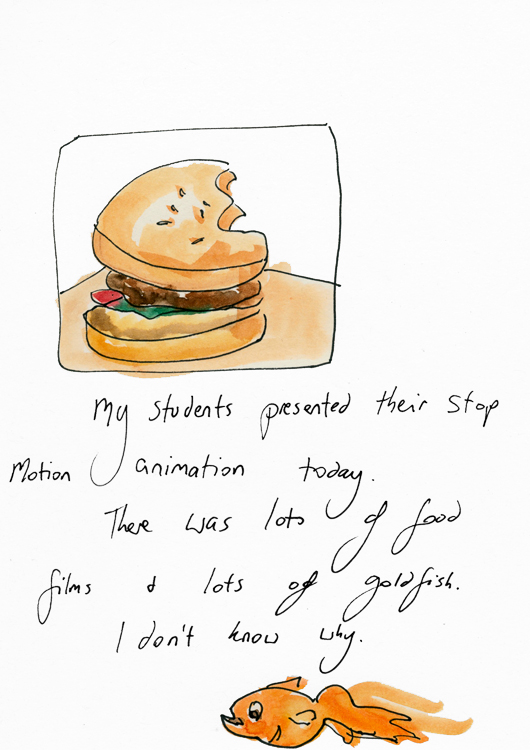 My students presented their stop
Motion animation today.
There was lots of food
films & lots of goldfish.
I don't know why.